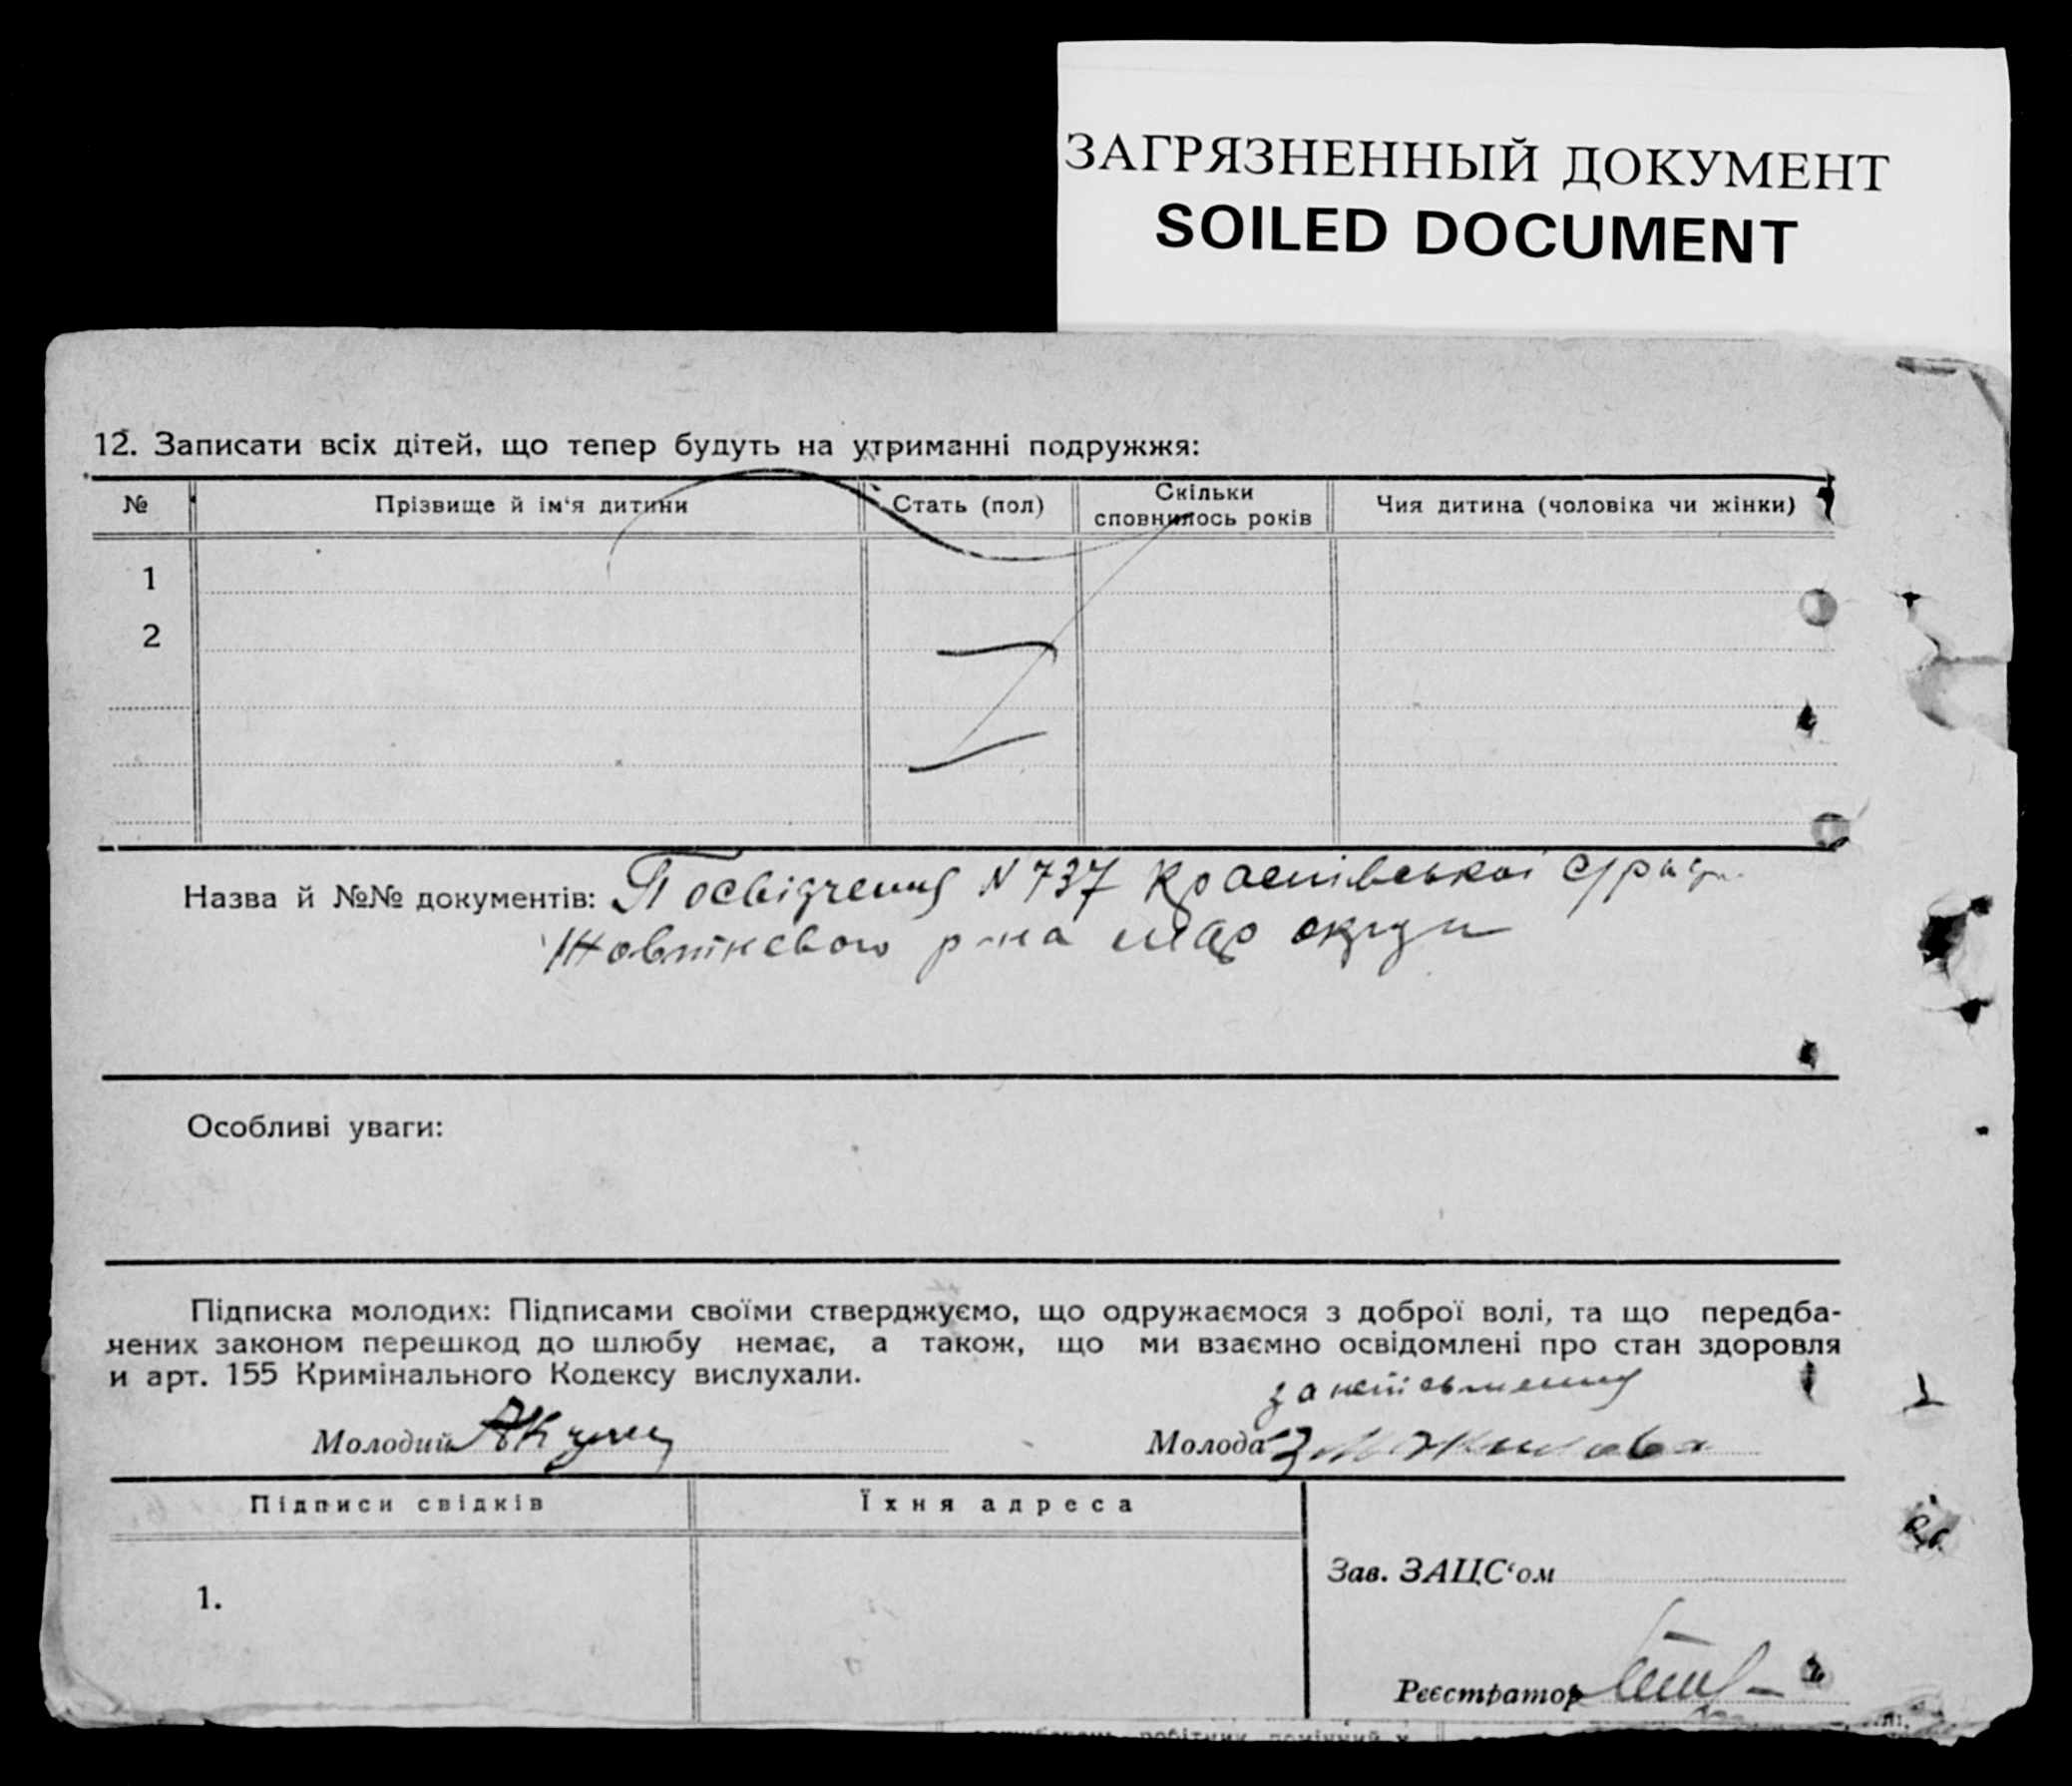 ЗАГРЯЗНЕННЫЙ ДОКУМЕНТ
SOILED DOCUMENT
12. Записати всіх дітей, що тепер будуть на утриманні подружжя:
№ Прізвище й ім‘я дитини Стать (пол) Скільки сповнилось років Чия дитина (чоловіка чи жінки)
1
2
Назва й №№ документів: Посвідчення N 737
р-на округи
Особливі уваги:
Підписка молодих: Підписами своїми стверджуємо, що одружаємося з доброї волі, та що передба-
чених законом перешкод до шлюбу немає, а також, що ми взаємно освідомлені про стан здоровля
и арт. 155 Кримінального Кодексу вислухали.
Молодий Молода
Підписи свідків Їхня адреса
Зав. ЗАЦС‘ом
1.
Реєстратор